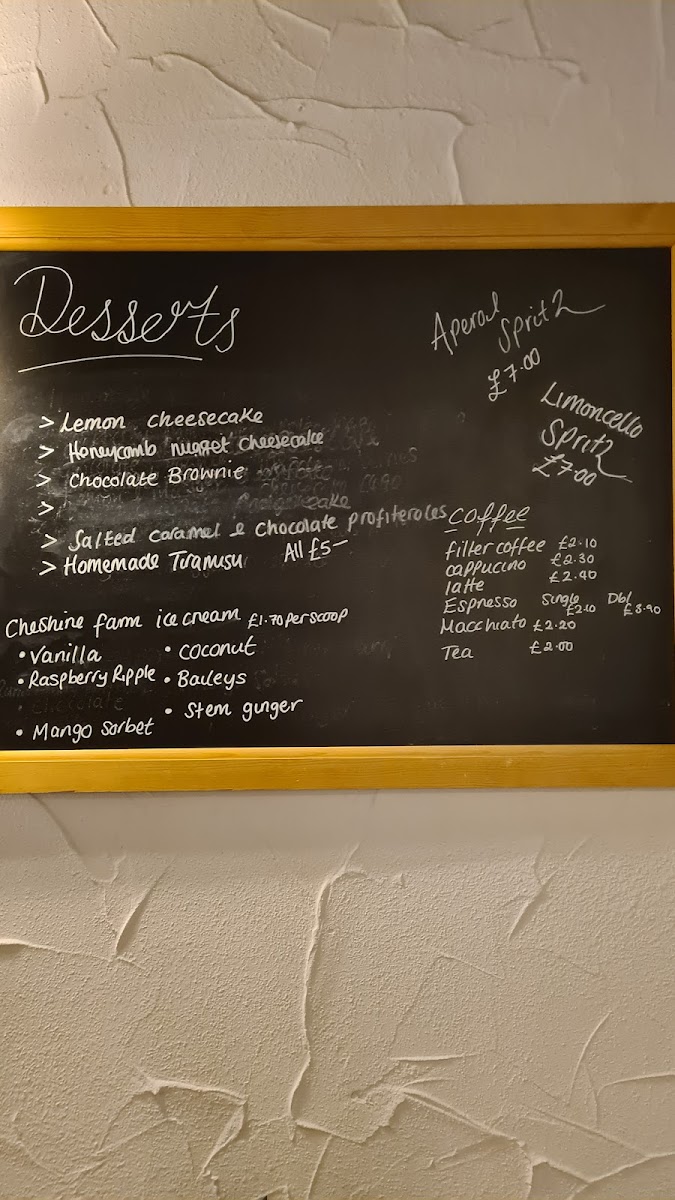 Desserts
> Lemon cheesecake
> Honeycomb nugget cheesecake
> Chocolate Brownie
>
> Salted caramel & chocolate profiteroles
> Homemade Tiramisu All £5-
Cheshire farm ice cream £1.70 per scoop
• Vanilla
• Raspberry Ripple
• Mango Sorbet
• Coconut
• Baileys
• Stem ginger
Aperol
Spritz
£7.00
Limoncello
Spritz
£7.00
Coffee
filter coffee £2.10
cappuccino £2.30
latte £2.40
Espresso Single £2.10 Dbl £3.90
Macchiato £2.20
Tea £2.00